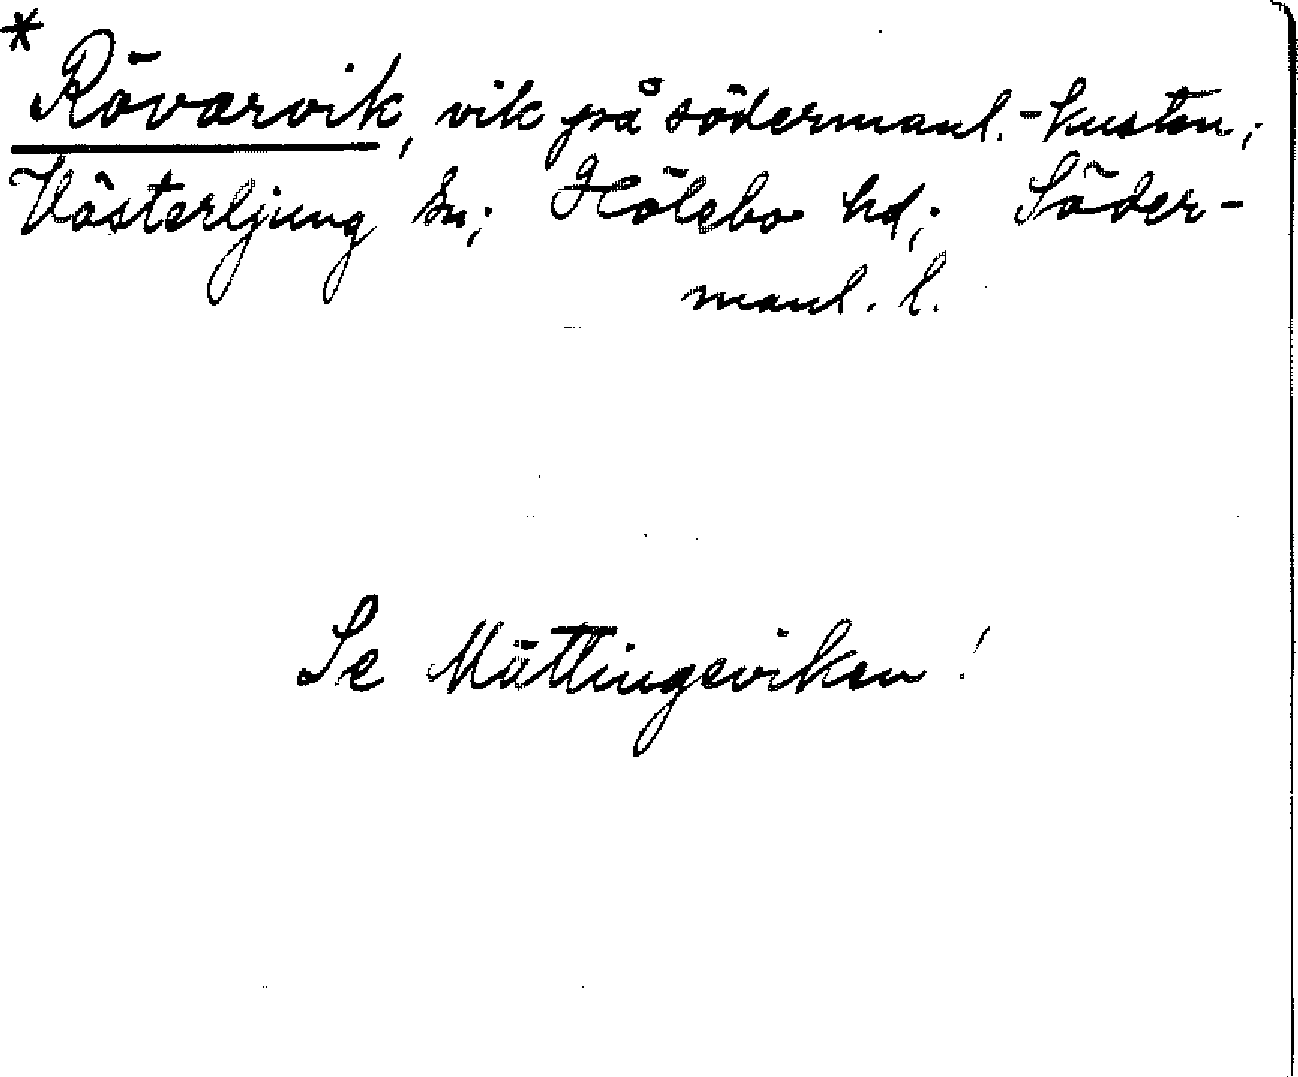 *
Rövarvik, vik på södermanl.-kusten;
Västerljung sn; Hölebo hd; Söder-
manl. l.
Se Mättingeviken!